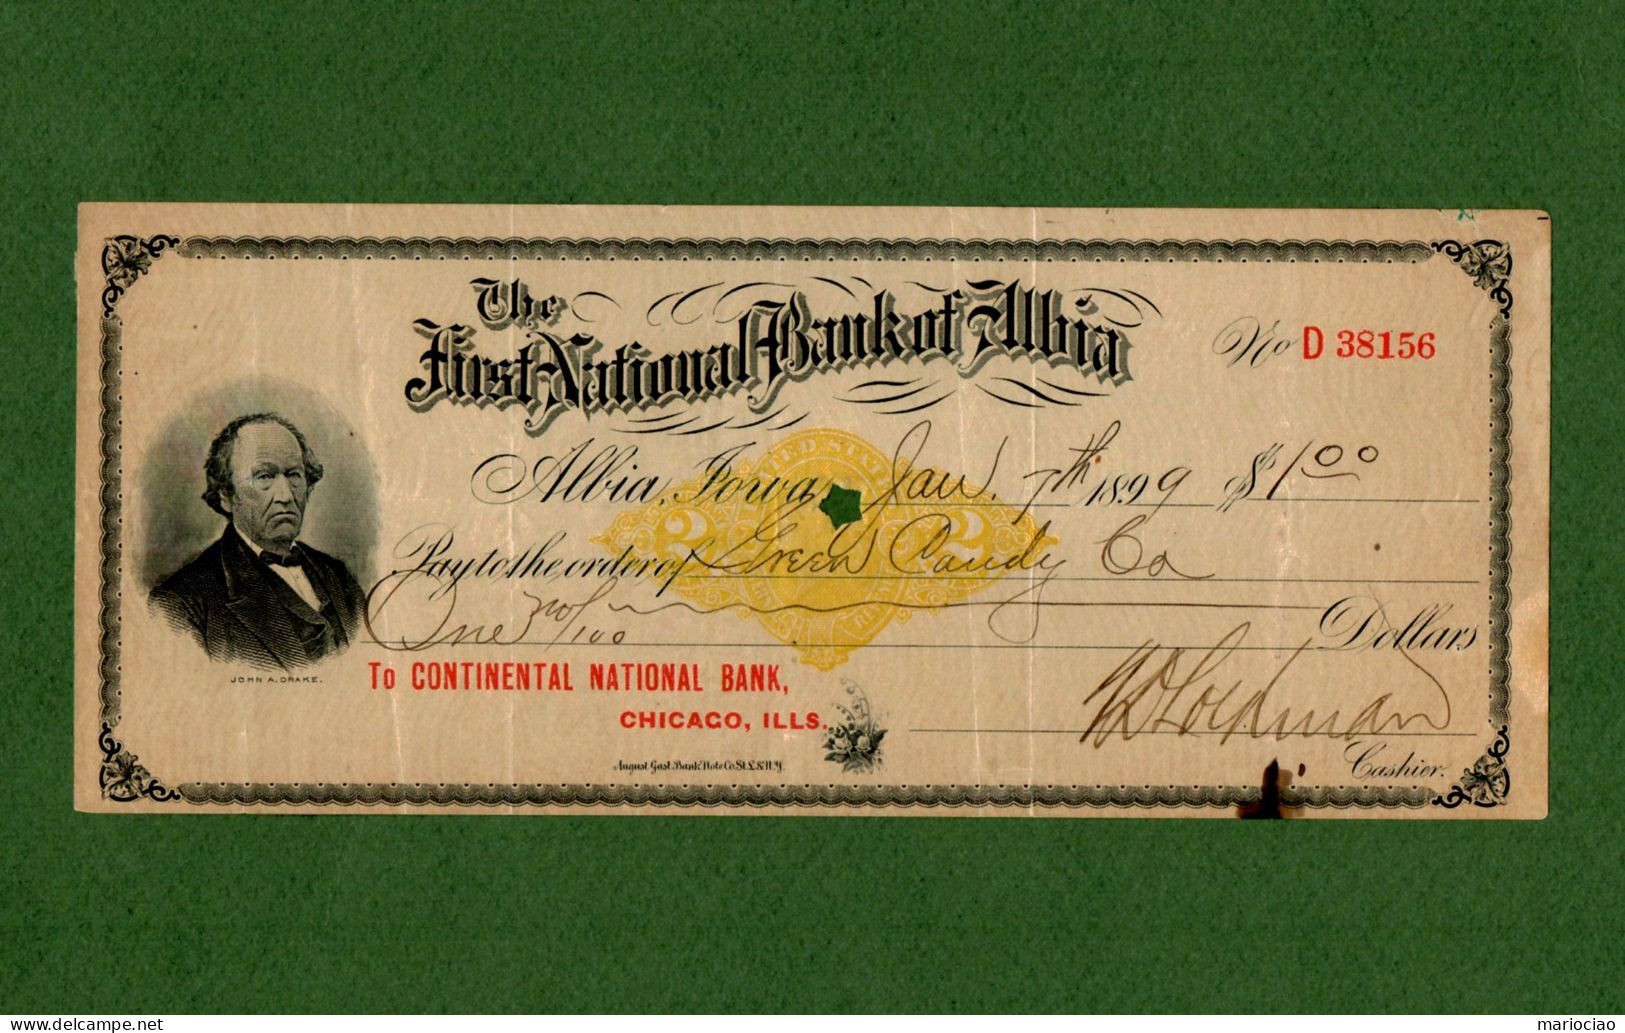 The
First National Bank of Albia
No D 38156
UNITED STATES
Albia, Iowa, Jan. 7th 1899 $1.00
2 2
Pay to the order of Green Candy Co
One no/100 Dollars
JOHN A. DRAKE.
To CONTINENTAL NATIONAL BANK,
CHICAGO, ILLS.
August Gast Bank Note Co. St. L & N.Y.
Cashier.
mariociao